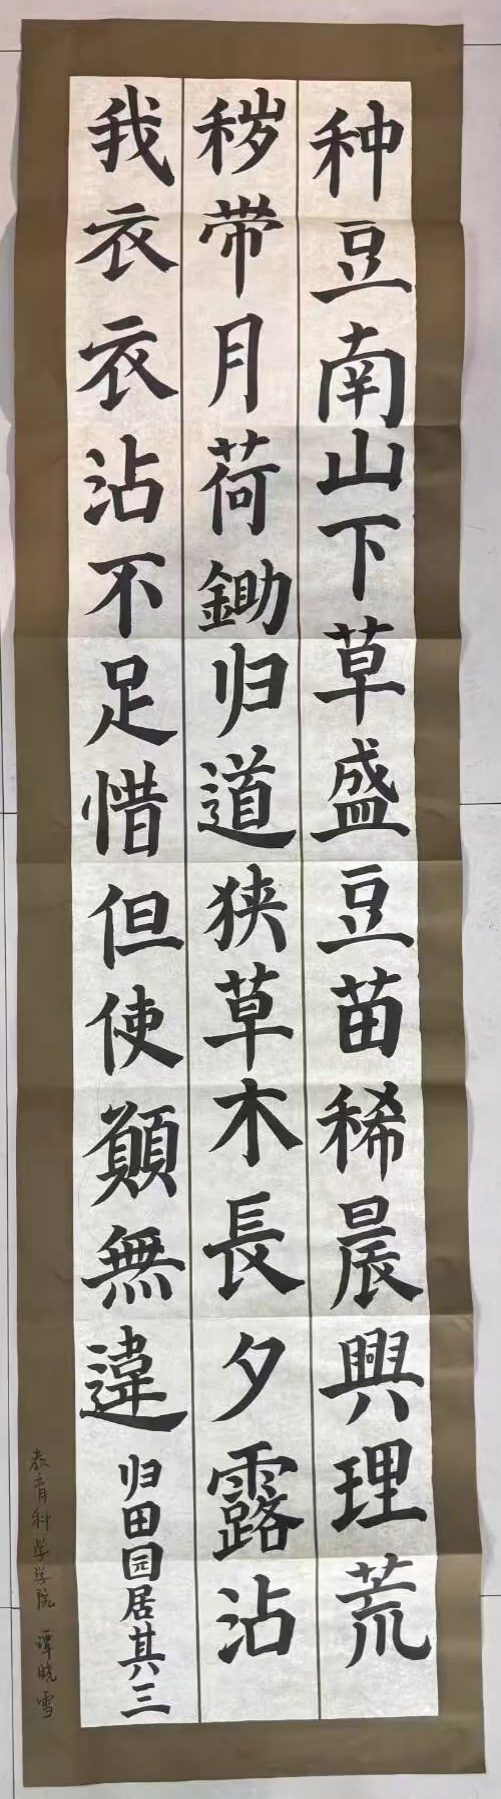 种豆南山下草盛豆苗稀晨興理荒
秽带月荷鋤归道狭草木長夕露沾
我衣衣沾不足惜但使願無違
归田园居其三
教育科学学院 谭晓雪